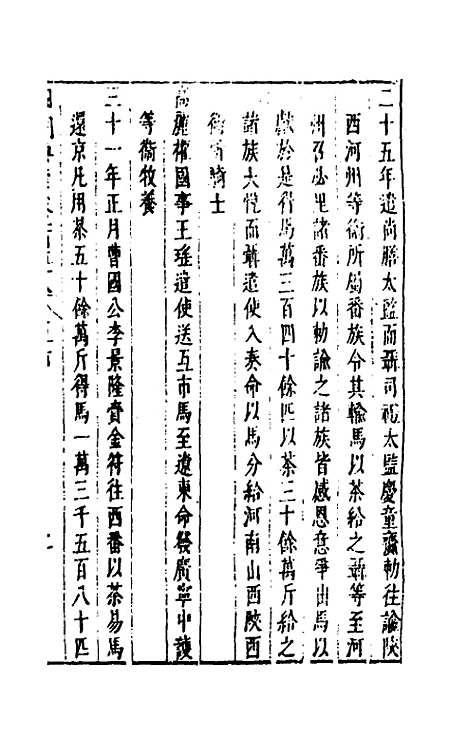 二十五年遣尚膳太監而聶司禮太監慶童齎勅往諭陝
西河州等衛所屬番族令其輸馬以茶給之聶等至河
州召必里諸番族以勅諭之諸族皆感恩意爭出馬以
獻於是得馬萬三百四十餘匹以茶三十餘萬斤給之
諸族大悅而聶遣使入奏命以馬分給河南山西陝西
衛所騎士
高麗權國事王瑤遣使送互市馬至遼東命發廣寧中護
等衛牧養
三十一年正月曹國公李景隆賫金符往西番以茶易馬
還京凡用茶五十餘萬斤得馬一萬三千五百八十匹